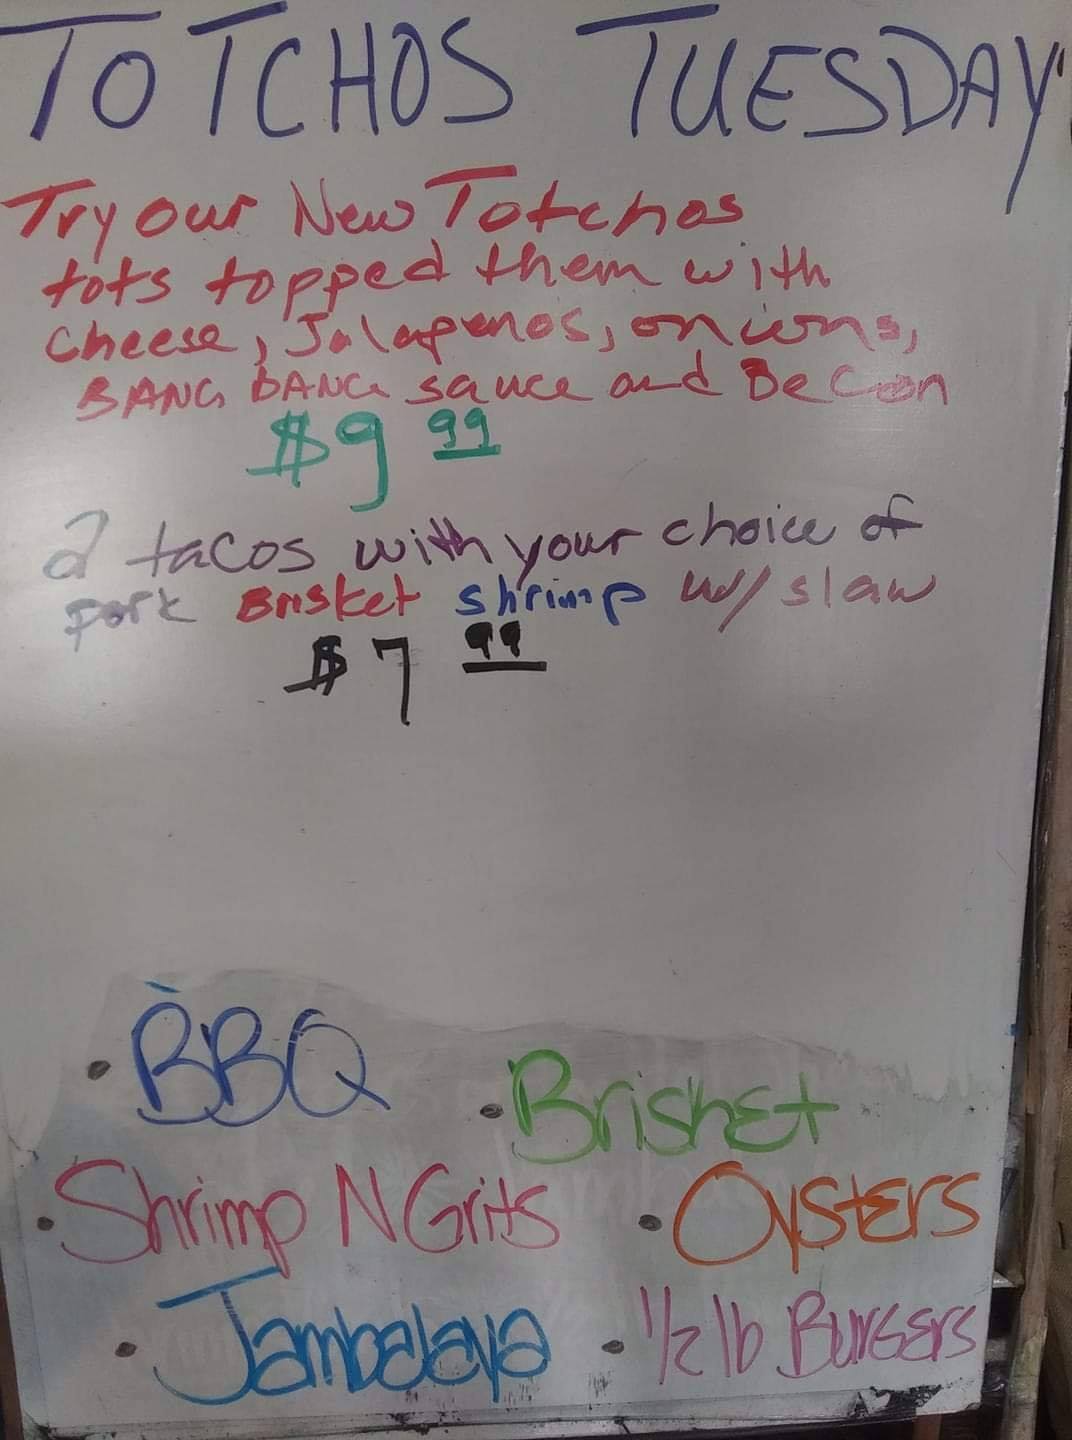 TOTCHOS TUESDAY
Try our New Totchos
tots topped them with
cheese, Jalapenos, onions,
BANG BANG sauce and Becon
$9 99
2 tacos with your choice of
pork Brisket shrimp w/ slaw
$7 99
• BBQ
• Brisket
• Shrimp N Grits
• Oysters
• Jambalaya
• 1/2 lb Burgers